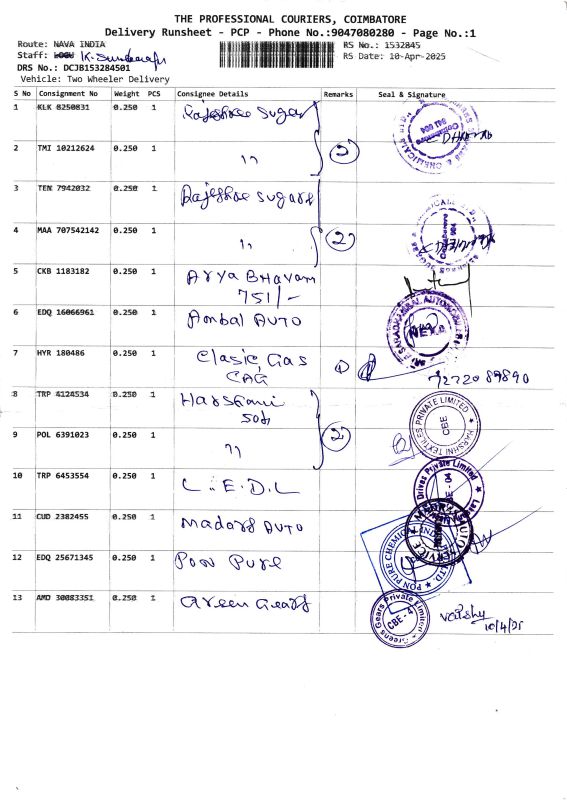 THE PROFESSIONAL COURIERS, COIMBATORE
Delivery Runsheet - PCP - Phone No.:9047080280 - Page No.:1
Route: NAVA INDIA
RS No.: 1532845
Staff: LOGU K. Sundararaj
RS Date: 10-Apr-2025
DRS No.: DCJB153284501
Vehicle: Two Wheeler Delivery
S No Consignment No Weight PCS Consignee Details Remarks Seal & Signature
1 KLK 8250831 0.250 1 Rajeshree Sugar
2 TMI 10212624 0.250 1 " 2
3 TEN 7942032 0.250 1 Rajeshree Sugars
4 MAA 707542142 0.250 1 " 2
5 CKB 1183182 0.250 1 Arya Bhavam
751/-
6 EDQ 16066961 0.250 1 Ambal Auto
7 HYR 180486 0.250 1 Clasic Gas
CAG
8 TRP 4124534 0.250 1 Harshani
HARSHNI TEXTILES PRIVATE LIMITED CBE
9 POL 6391023 0.250 1 " 2
10 TRP 6453554 0.250 1 L.E.D.L
Drives Private Limited
11 CUD 2382455 0.250 1 Madars Auto
12 EDQ 25671345 0.250 1 Pon Pure
PON PURE CHEMICAL
13 AMD 30083351 0.250 1 Green Gears
Greens Gears Private Limited CBE - 4
10/4/25